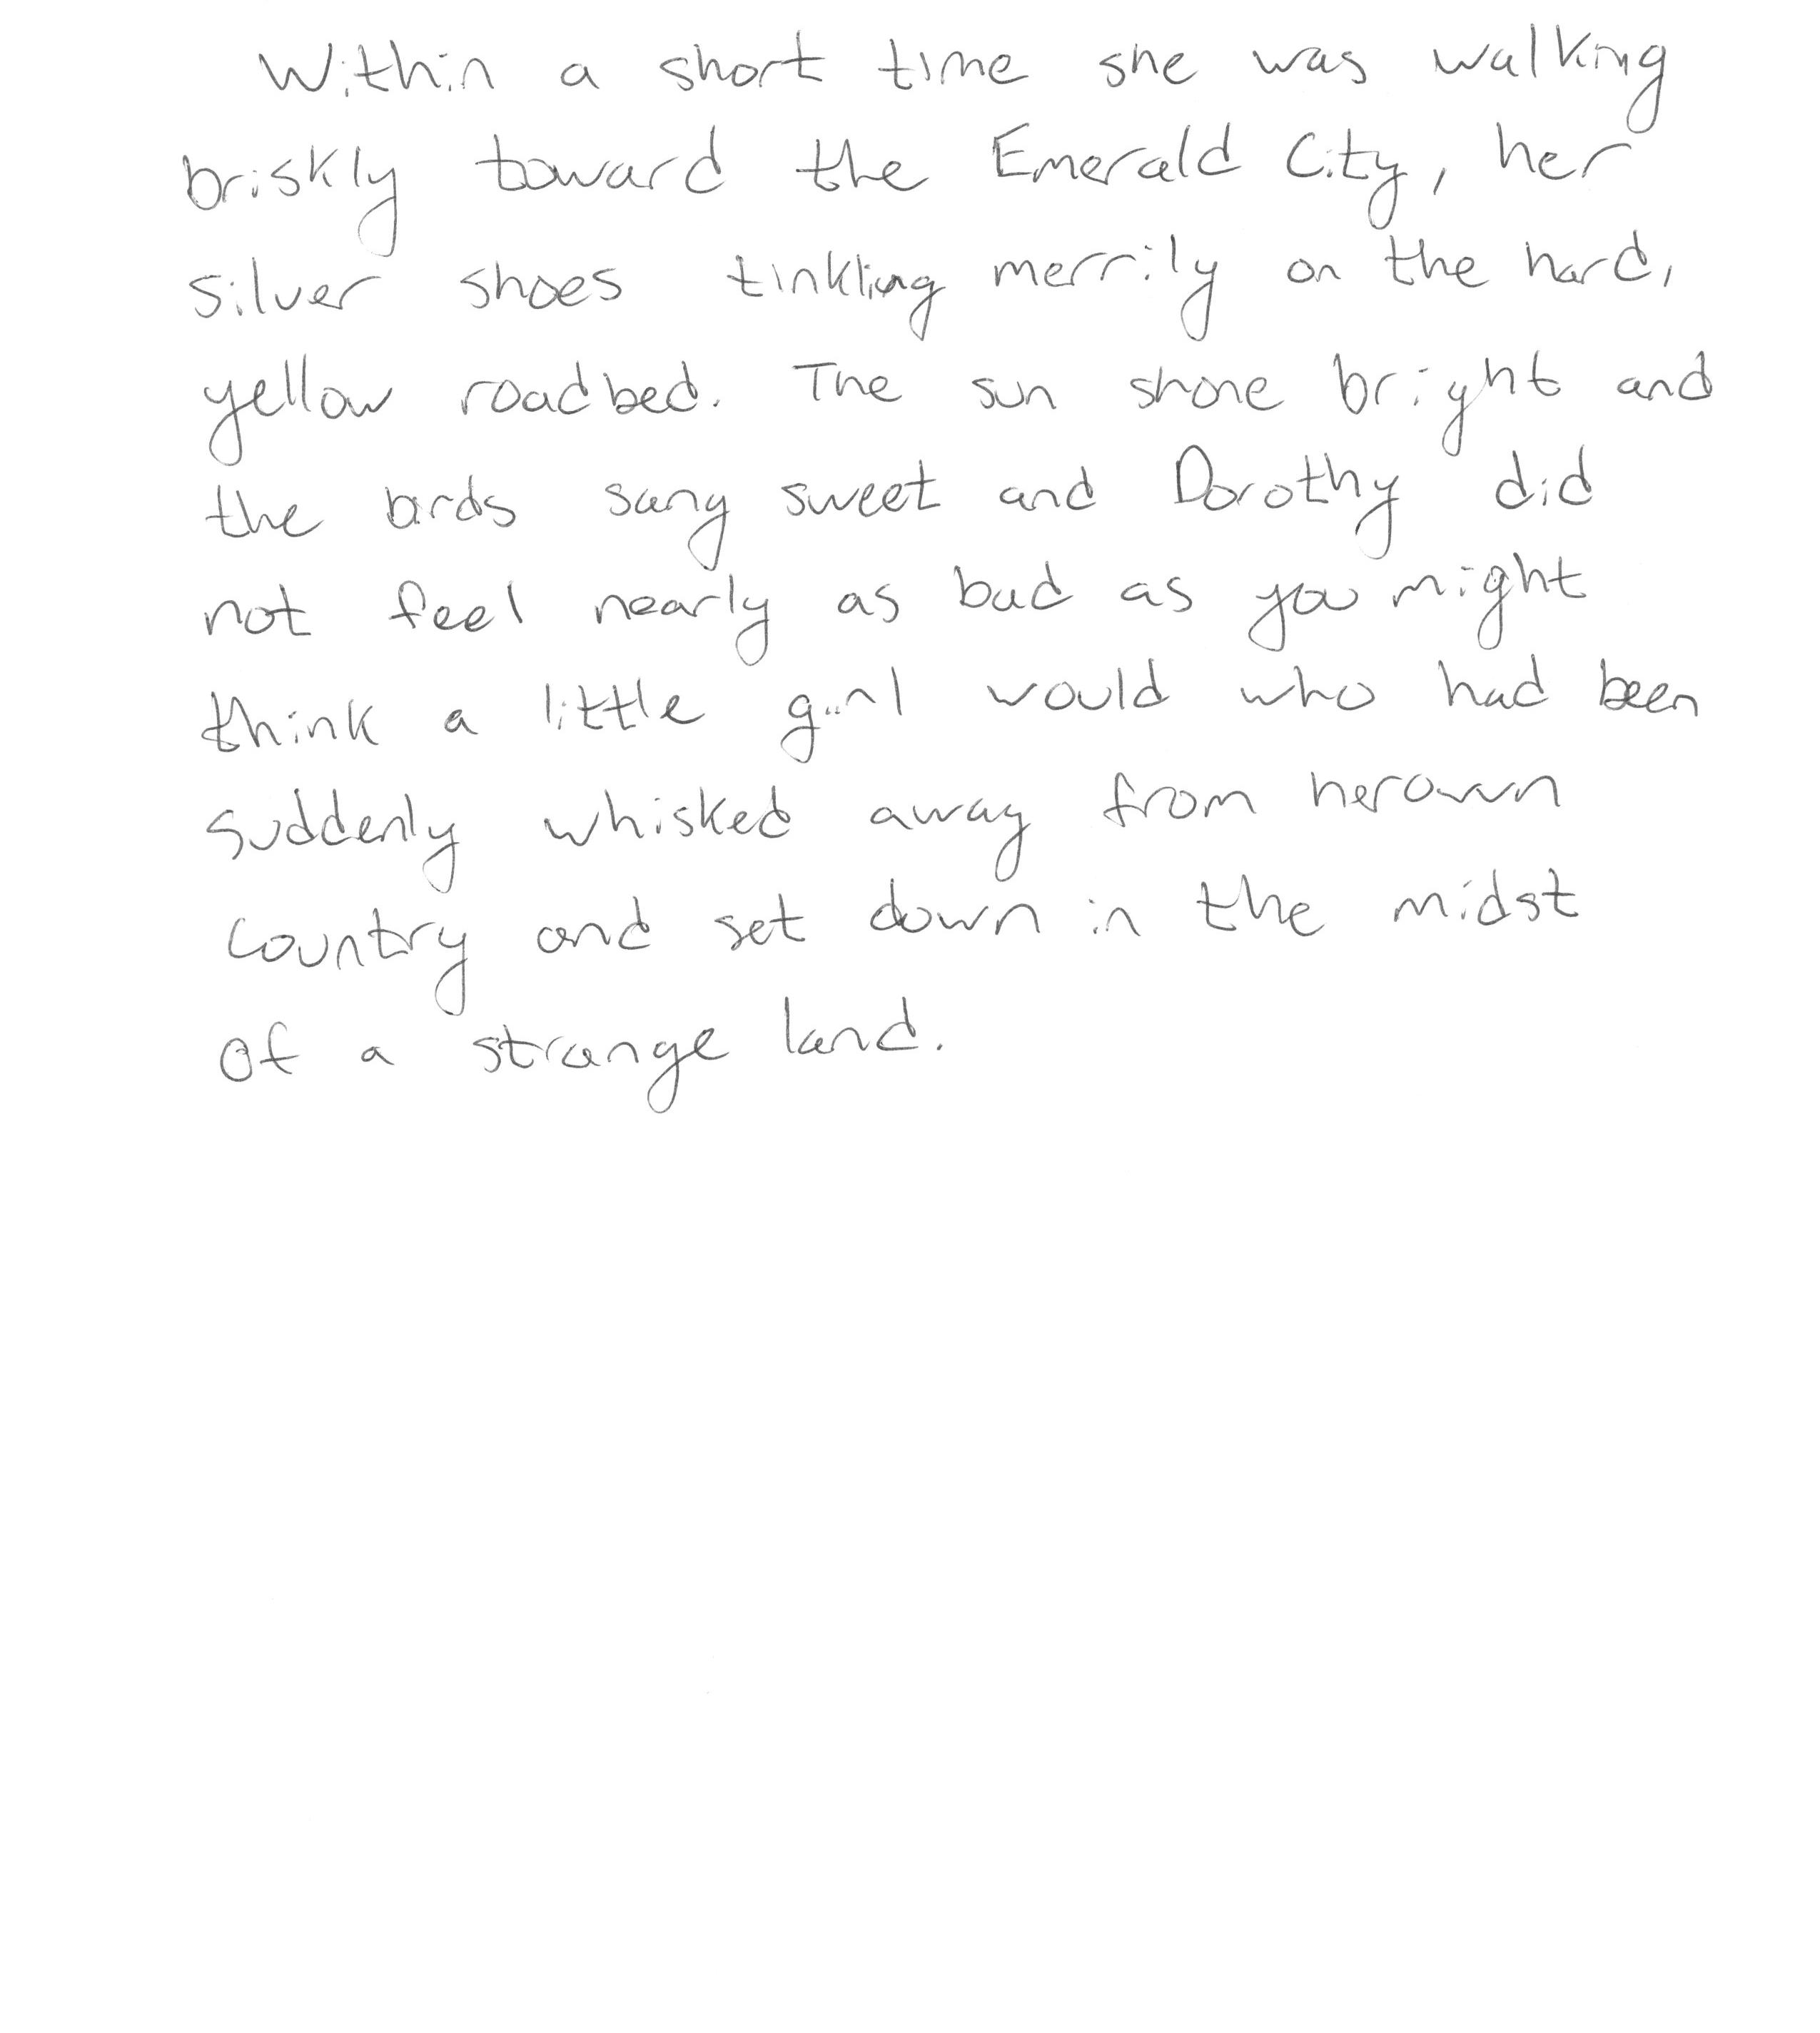 Within a short time she was walking
briskly toward the Emerald City, her
silver shoes tinkling merrily on the hard,
yellow roadbed. The sun shone bright and
the birds sang sweet and Dorothy did
not feel nearly as bad as you might
think a little girl would who had been
suddenly whisked away from her own
country and set down in the midst
of a strange land.